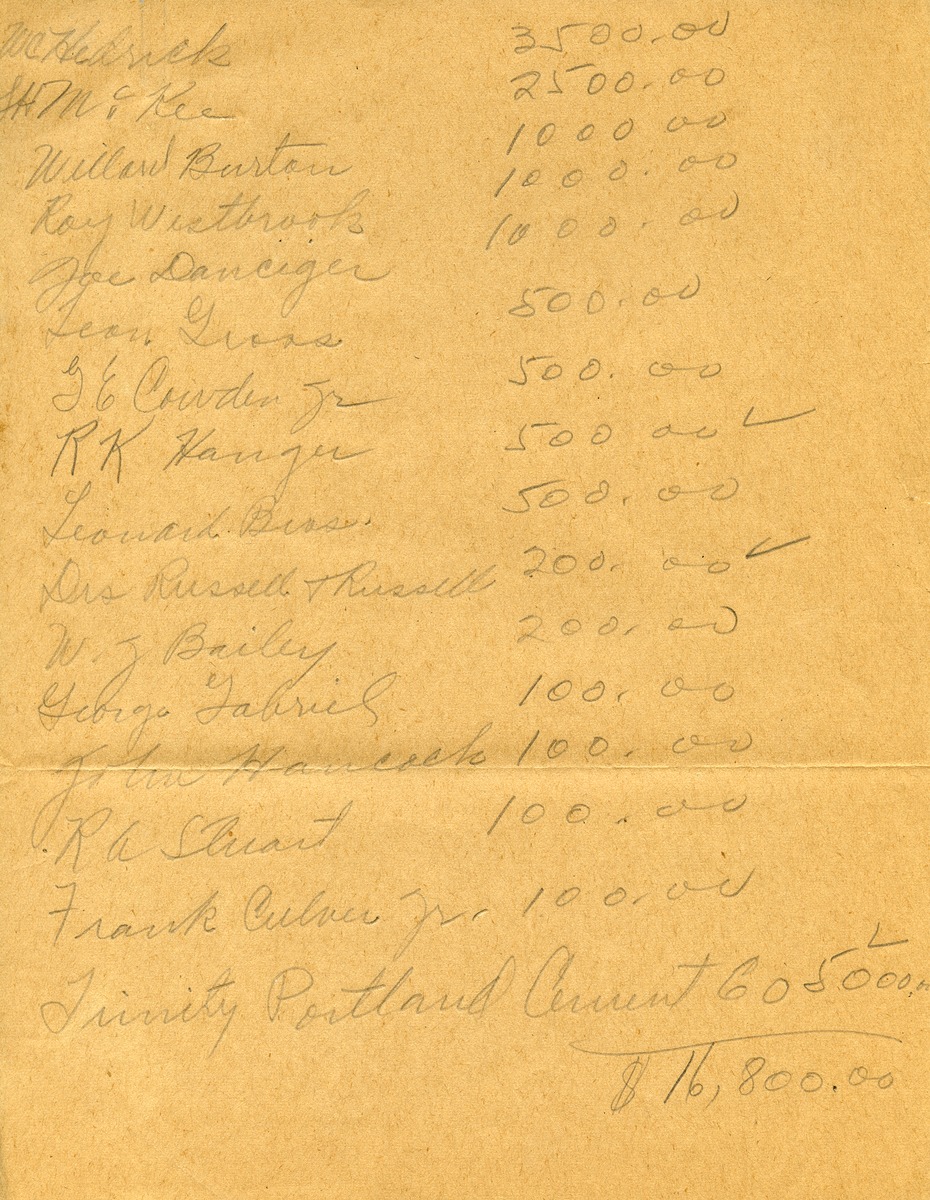 WC Hedrick 3500.00
SH McKee 2500.00
Willard Burton 1000 00
Roy Westbrook 1000.00
Joe Danciger 1000.00
Leon Gross 500.00
G E Cowden Jr 500.00
R K Hanger 500 00 ✓
Leonard Bros. 500.00
Drs Russell + Russell 200.00 ✓
W. J Bailey 200.00
George Gabriel 100.00
John Hancock 100.00
R A Stuart 100.00
Frank Culver Jr. 100.00
Trinity Portland Cement Co 5000.00 ✓
$ 16,800.00